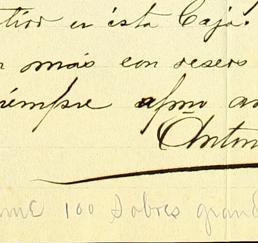 en ésta Caja.
más con reserv
siempre afmo
Anton
100 Sobres grand